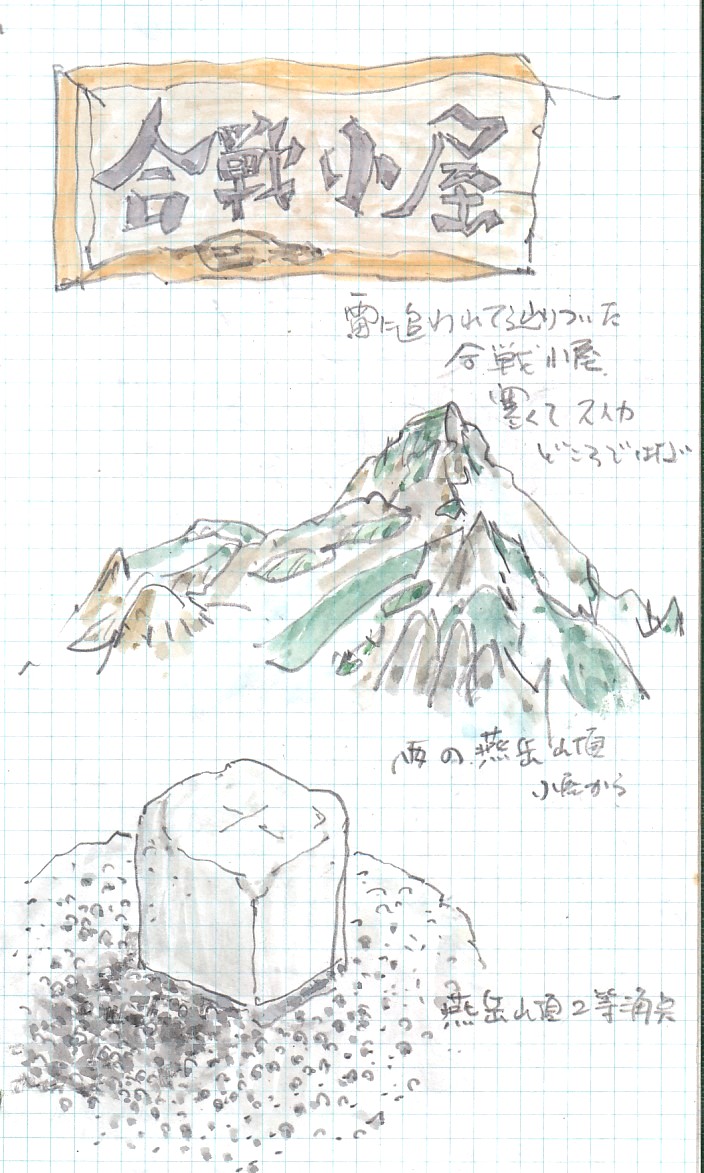 合戦小屋
雷に追われて辿りついた
合戦小屋
寒くてスイカ
どころでは
雨の燕岳山頂
小屋から
燕岳山頂2等